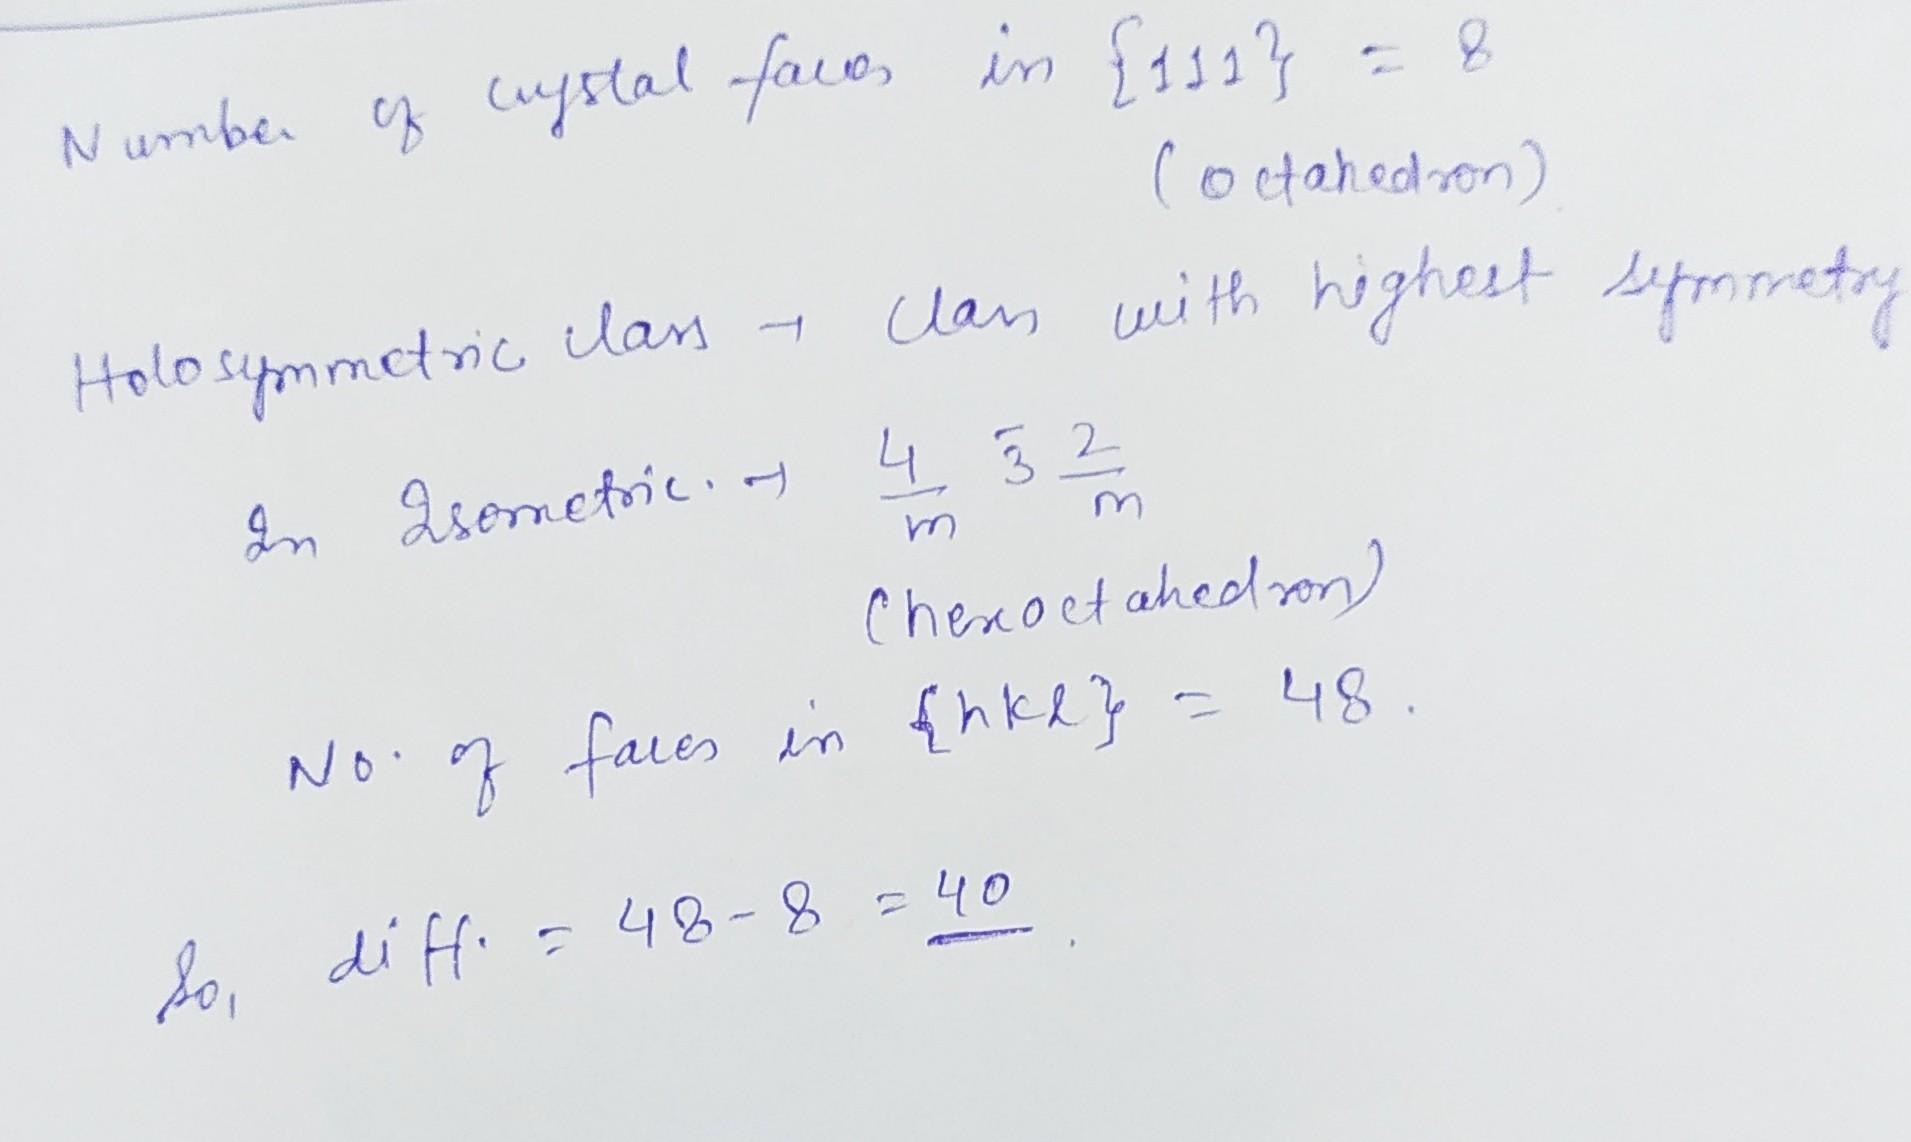 Number of crystal faces in {111} = 8
(octahedron)
Holosymmetric class → Class with highest symmetry
In Isometric. → 4/m 3̄ 2/m
(hexoctahedron)
No. of faces in {hkl} = 48.
So, diff. = 48-8 = 40.